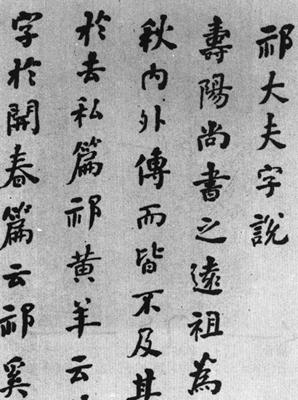 祁大夫字說
壽陽尚書之遠祖為
秋內外傳而皆不及其
於去私篇祁黃羊云
字於開春篇云祁奚